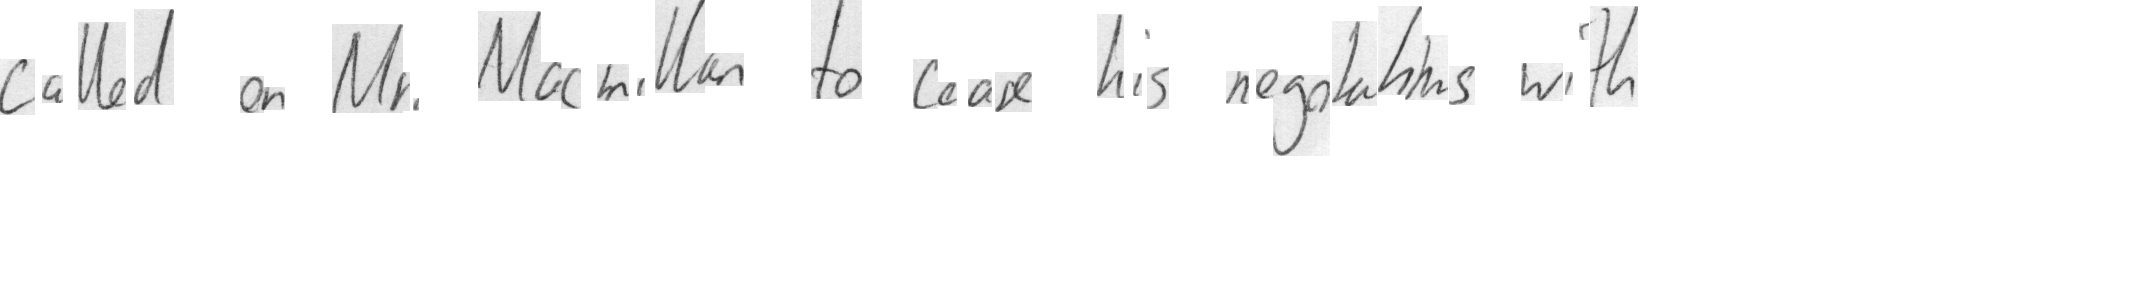 called on Mr. Macmillan to cease his negotiations with